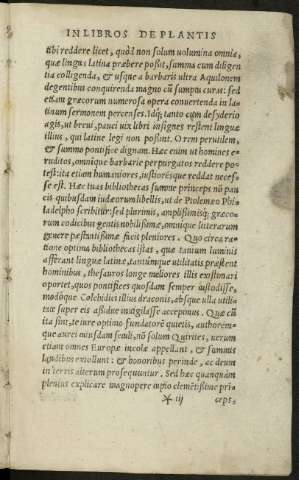 IN LIBROS DE PLANTIS
tibi reddere licet, quòd non solum uolumina omnia,
quæ lingua latina præbere possit, summa cum diligen
tia colligenda, & usque a barbaris ultra Aquilonem
degentibus conquirenda magno cū sumptu curas: sed
etiam græcorum numerosa opera conuertenda in la-
tinum sermonem percenses. Idq; tanto cum desyderio
agis, ut breui, pauci uix libri insignes restent linguæ
illius, qui latine legi non possint. O rem perutilem,
& summo pontifice dignam. Hæc enim ut homines e-
ruditos, omnique barbarie perpurgatos reddere po-
test: ita etiam humaniores, iustioresque reddat neces-
se est. Hac tuas bibliothecas summe princeps nō pau
cis quibusdam iudæorum libellis, ut de Ptolemæo Phi-
ladelpho scribitur: sed plurimis, amplissimisq; græco-
rum codicibus gentis nobilissimæ, omnique litterarum
genere præstantissimæ facit pleniores. Quo circa ra-
tione optima bibliothecas istas, quæ tantum luminis
afferant linguæ latinæ, tantumque utilitatis præstent
hominibus, thesauros longe meliores illis existimari
oportet, quos pontifices quosdam semper iustodisse,
modoque Colchidici illius draconis, absque ulla utilita
tate super eis assidue uigilasse accepimus. Quæ cū
ita sint, te iure optimo fundatorē quietis, authorem-
que aurei cuiusdam seculi, nō solum Quirites, uerum
etiam omnes Europæ incolæ appellant, & summis
laudibus extollunt: & honoribus perinde, ac deum
in terris alterum prosequuntur. Sed hæc quanquàm
plenius explicare magnopere cupio clementissime prin
* iij ceps,